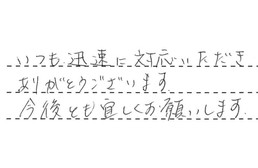 いつも迅速に対応いただき
ありがとうございます.
今後とも宜しくお願いします.